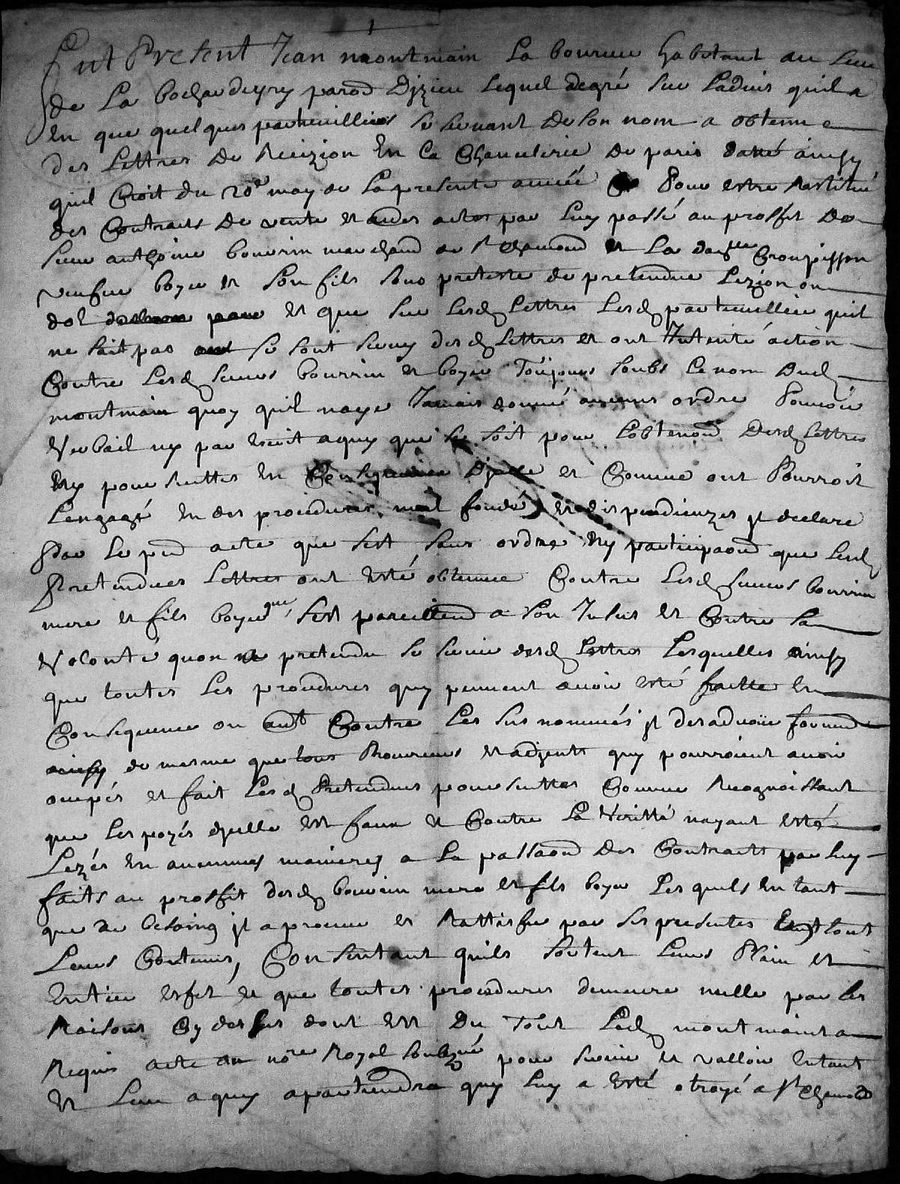 fut Present Jean montmain La boureur habitant au lieu
de La bochaudeyry parod Dizieu lequel degré sur Ladvis quil a
En que quelques partieuilliers se seruant de son nom a obtenu
des Lettres de Recizion En la Chancelerie de paris datté ainsy
quil Croit du 20e may de La presente année Pour estre Restitué
des Contrats de vente et autres actes par Luy passé au proffet de
sieur anthoine bourrin marchand de st chamond et La de
veufue boyer et son fils sous preteste de pretendue Lezion ou
dol et que sur Lesd Lettres Lesd partieuilliers quil
ne sait pas se sont seruy desd Lettres et ont Intenté action
Contre Lesd sieurs bourrin et boyer Toujours soubs Le nom Dud
montmain quoy quil naye Jamais donné aucuns ordre Pouuoir
Verbail ny par Escrit a quy que se soit pour Lobtenaon Desd Lettres
Ny poursuittes En Consequence Dycelle et Comme ont Pourroit
Lengagé En des procedures mal fondés et dispendieuzes jl declare
Par Le pnt acte que sest sans ordre Ny participaon que Lesd
Pretendues Lettres ont esté obtenue Contre Lesd sieurs bourrin
mere et fils boyer que sest pareillemt a son Insut et Contre sa
Volonté quon a pretendu se seruir desd Lettres Lesquelles ainsy
que toutes Les procedures quy peuuent auoir esté faitte En
Consequence ou autt Contre Les sus nommés jl desaduoue formt
ainsy de mesme que tous Procureurs et adjents quy pourroient auoir
ocupés et fait Lesd Pretendues poursuittes Comme Recognoissant
que Les pozés dycelle est faux et Contre La Veritté nayant esté
Lezés En aucunnes manieres a La passaon des Contraits par luy
faits au proffit desd bourrin mere et fils boyer Lesquels En tant
que de besoing jl aprouue et Rattiffie par ses presentes En tout
Leurs Contenus, Consentant quils sortent Leurs Plain et
Entier effet et que toutes procedures demeure nulle par les
Raisons Cy dessus dont Et Du Tout Led montmain a
Requis acte au nore Royal soubzné pour seruir et valloir Entant
et Lieu a quy apartiendra quy Luy a Esté otroyé a st chamond